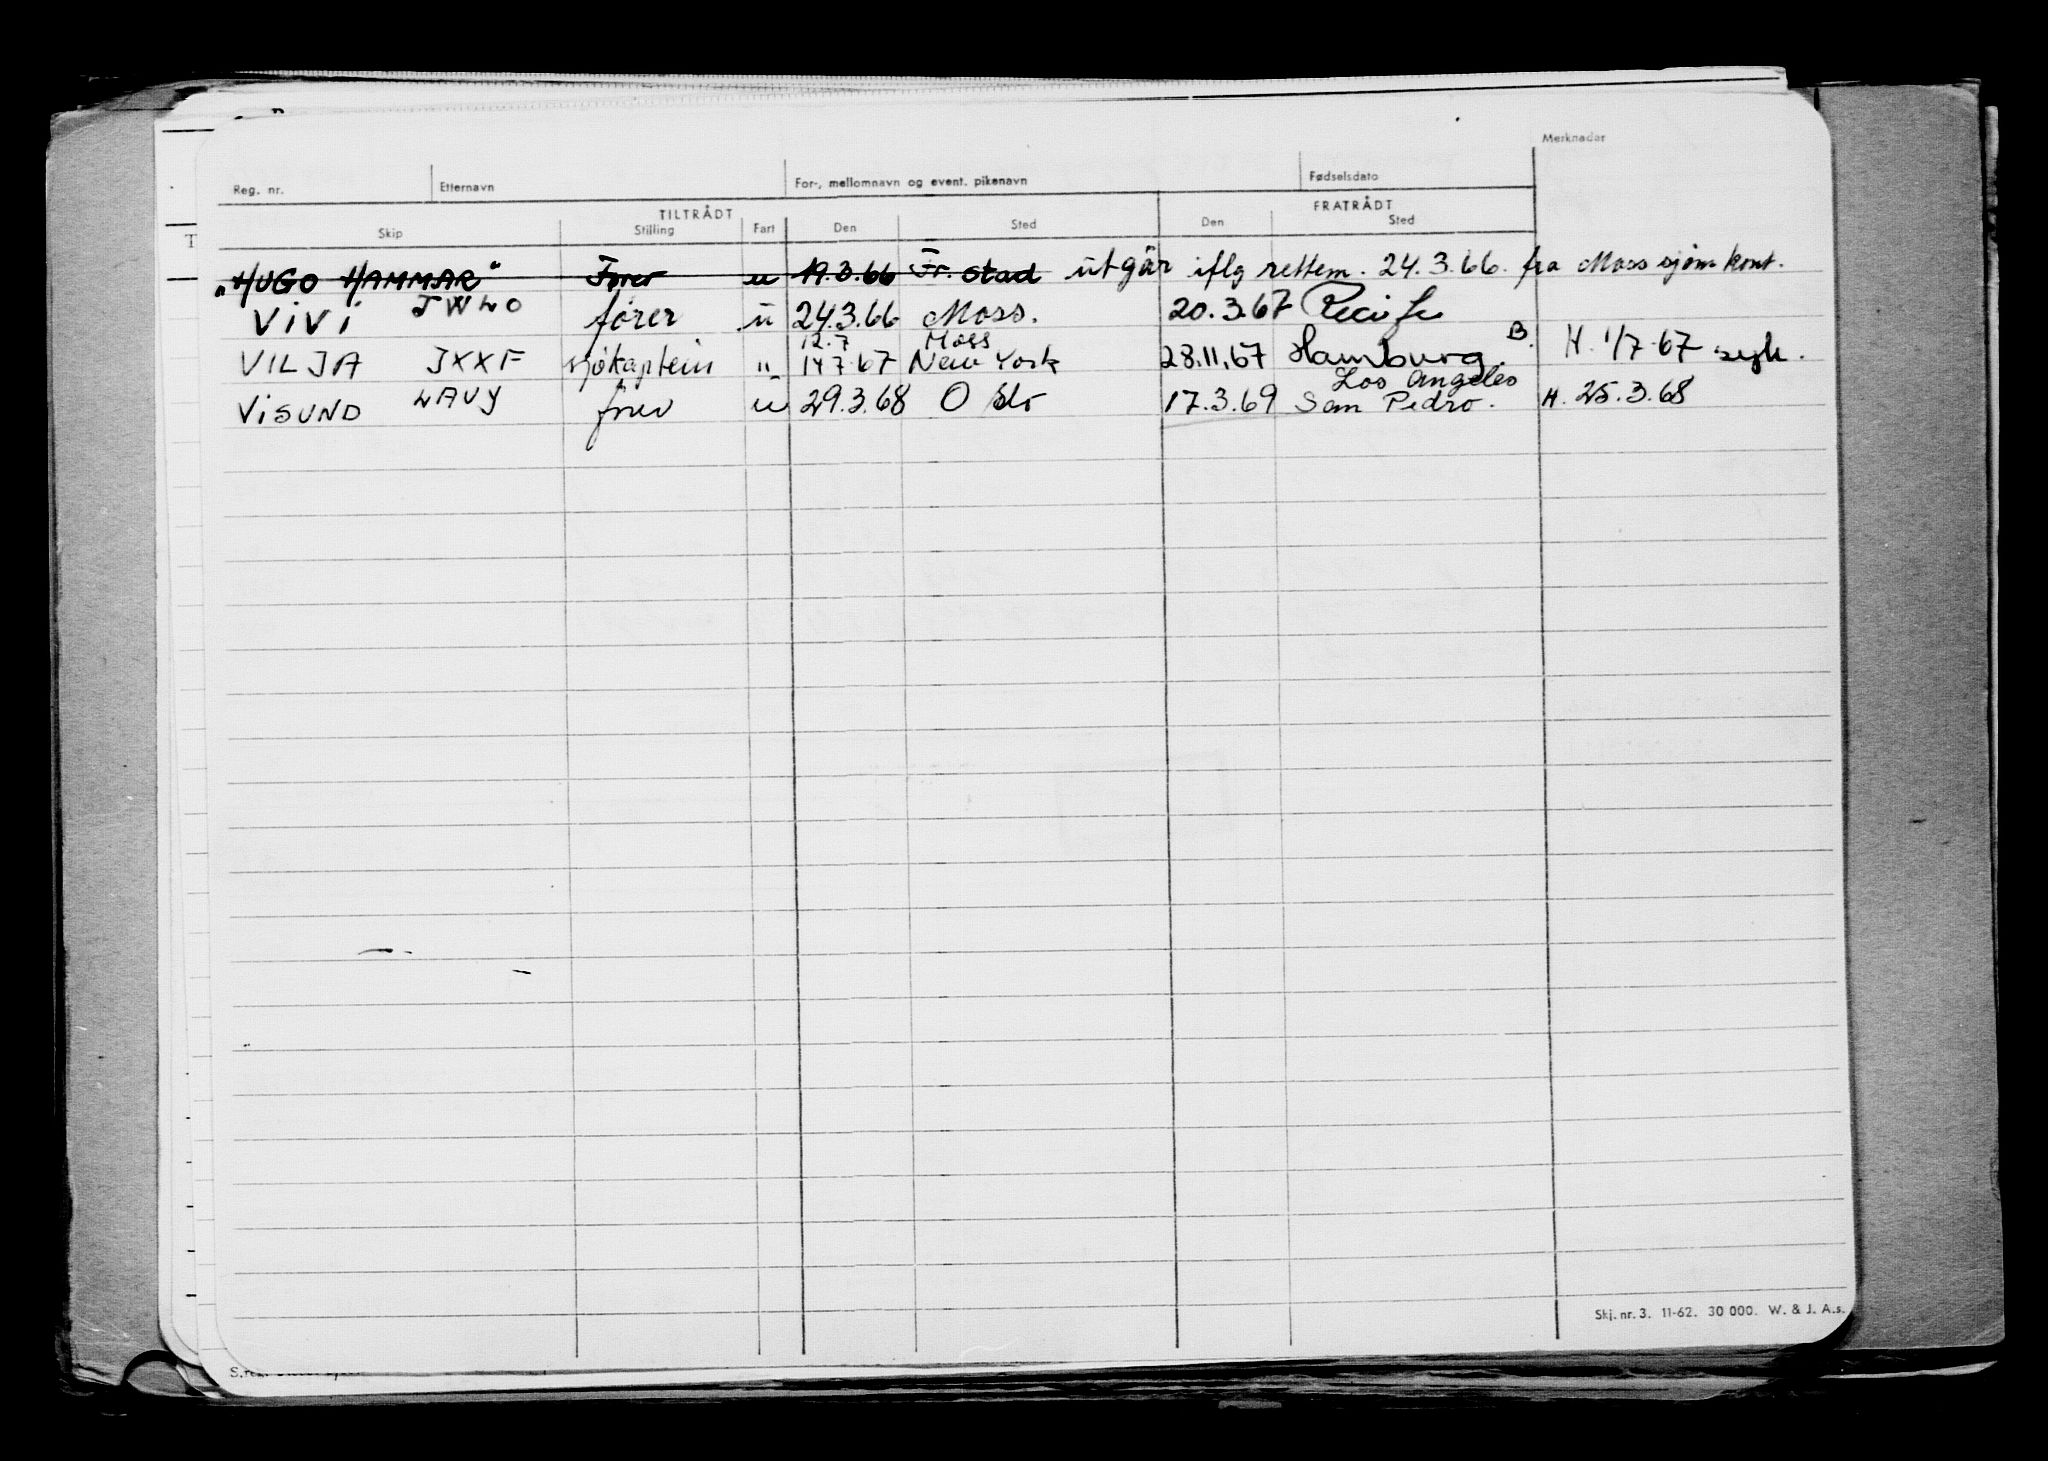 Merknader
Reg. nr. Etternavn For-, mellomnavn og event. pikenavn Fødselsdato
TILTRÅDT FRATRÅDT
Skip Stilling Fart Den Sted Den Sted
"HUGO HAMMAR" Fører u 19.3.66 Fr.stad utgår iflg rettem. 24.3.66. fra Moss sjøm.kont.
ViVi JWLO fører u 24.3.66 Moss. 20.3.67 Recife
12.7 Moss
VILJA JXXF sjøkaptein " 14.7.67 New York 28.11.67 Hamburg. B. H. 1/7-67 syk.
Los Angeles
ViSUND LAVY fører u 29.3.68 Oslo 17.3.69 San Pedro. H. 25.3.68
Skj. nr. 3. 11-62. 30 000. W. & J. A.s.